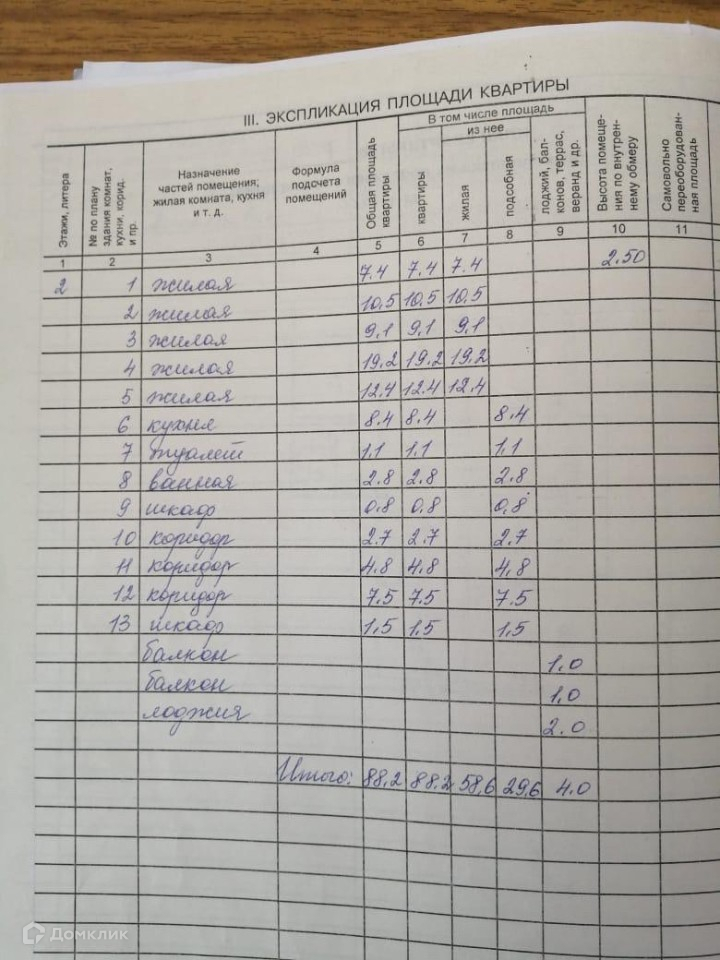 III. ЭКСПЛИКАЦИЯ ПЛОЩАДИ КВАРТИРЫ
Этажи, литера
№ по плану здания комнат, кухни, корид. и пр.
Назначение частей помещения; жилая комната, кухня и т. д.
Формула подсчета помещений
Общая площадь квартиры
В том числе площадь
из нее
квартиры
жилая
подсобная
лоджий, балконов, террас, веранд и др.
Высота помещения по внутреннему обмеру
Самовольно переоборудованная площадь
1 2 3 4 5 6 7 8 9 10 11
2 1 жилая 7.4 7.4 7.4 2.50
2 жилая 10,5 10,5 10,5
3 жилая 9,1 9,1 9,1
4 жилая 19,2 19,2 19,2
5 жилая 12.4 12.4 12.4
6 кухня 8.4 8.4 8.4
7 туалет 1,1 1,1 1,1
8 ванная 2.8 2.8 2.8
9 шкаф 0,8 0,8 0,8
10 коридор 2.7 2.7 2.7
11 коридор 4,8 4,8 4,8
12 коридор 7.5 7.5 7.5
13 шкаф 1,5 1,5 1,5
балкон 1,0
балкон 1,0
лоджия 2.0
Итого: 88,2 88,2 58,6 29,6 4.0
Домклик